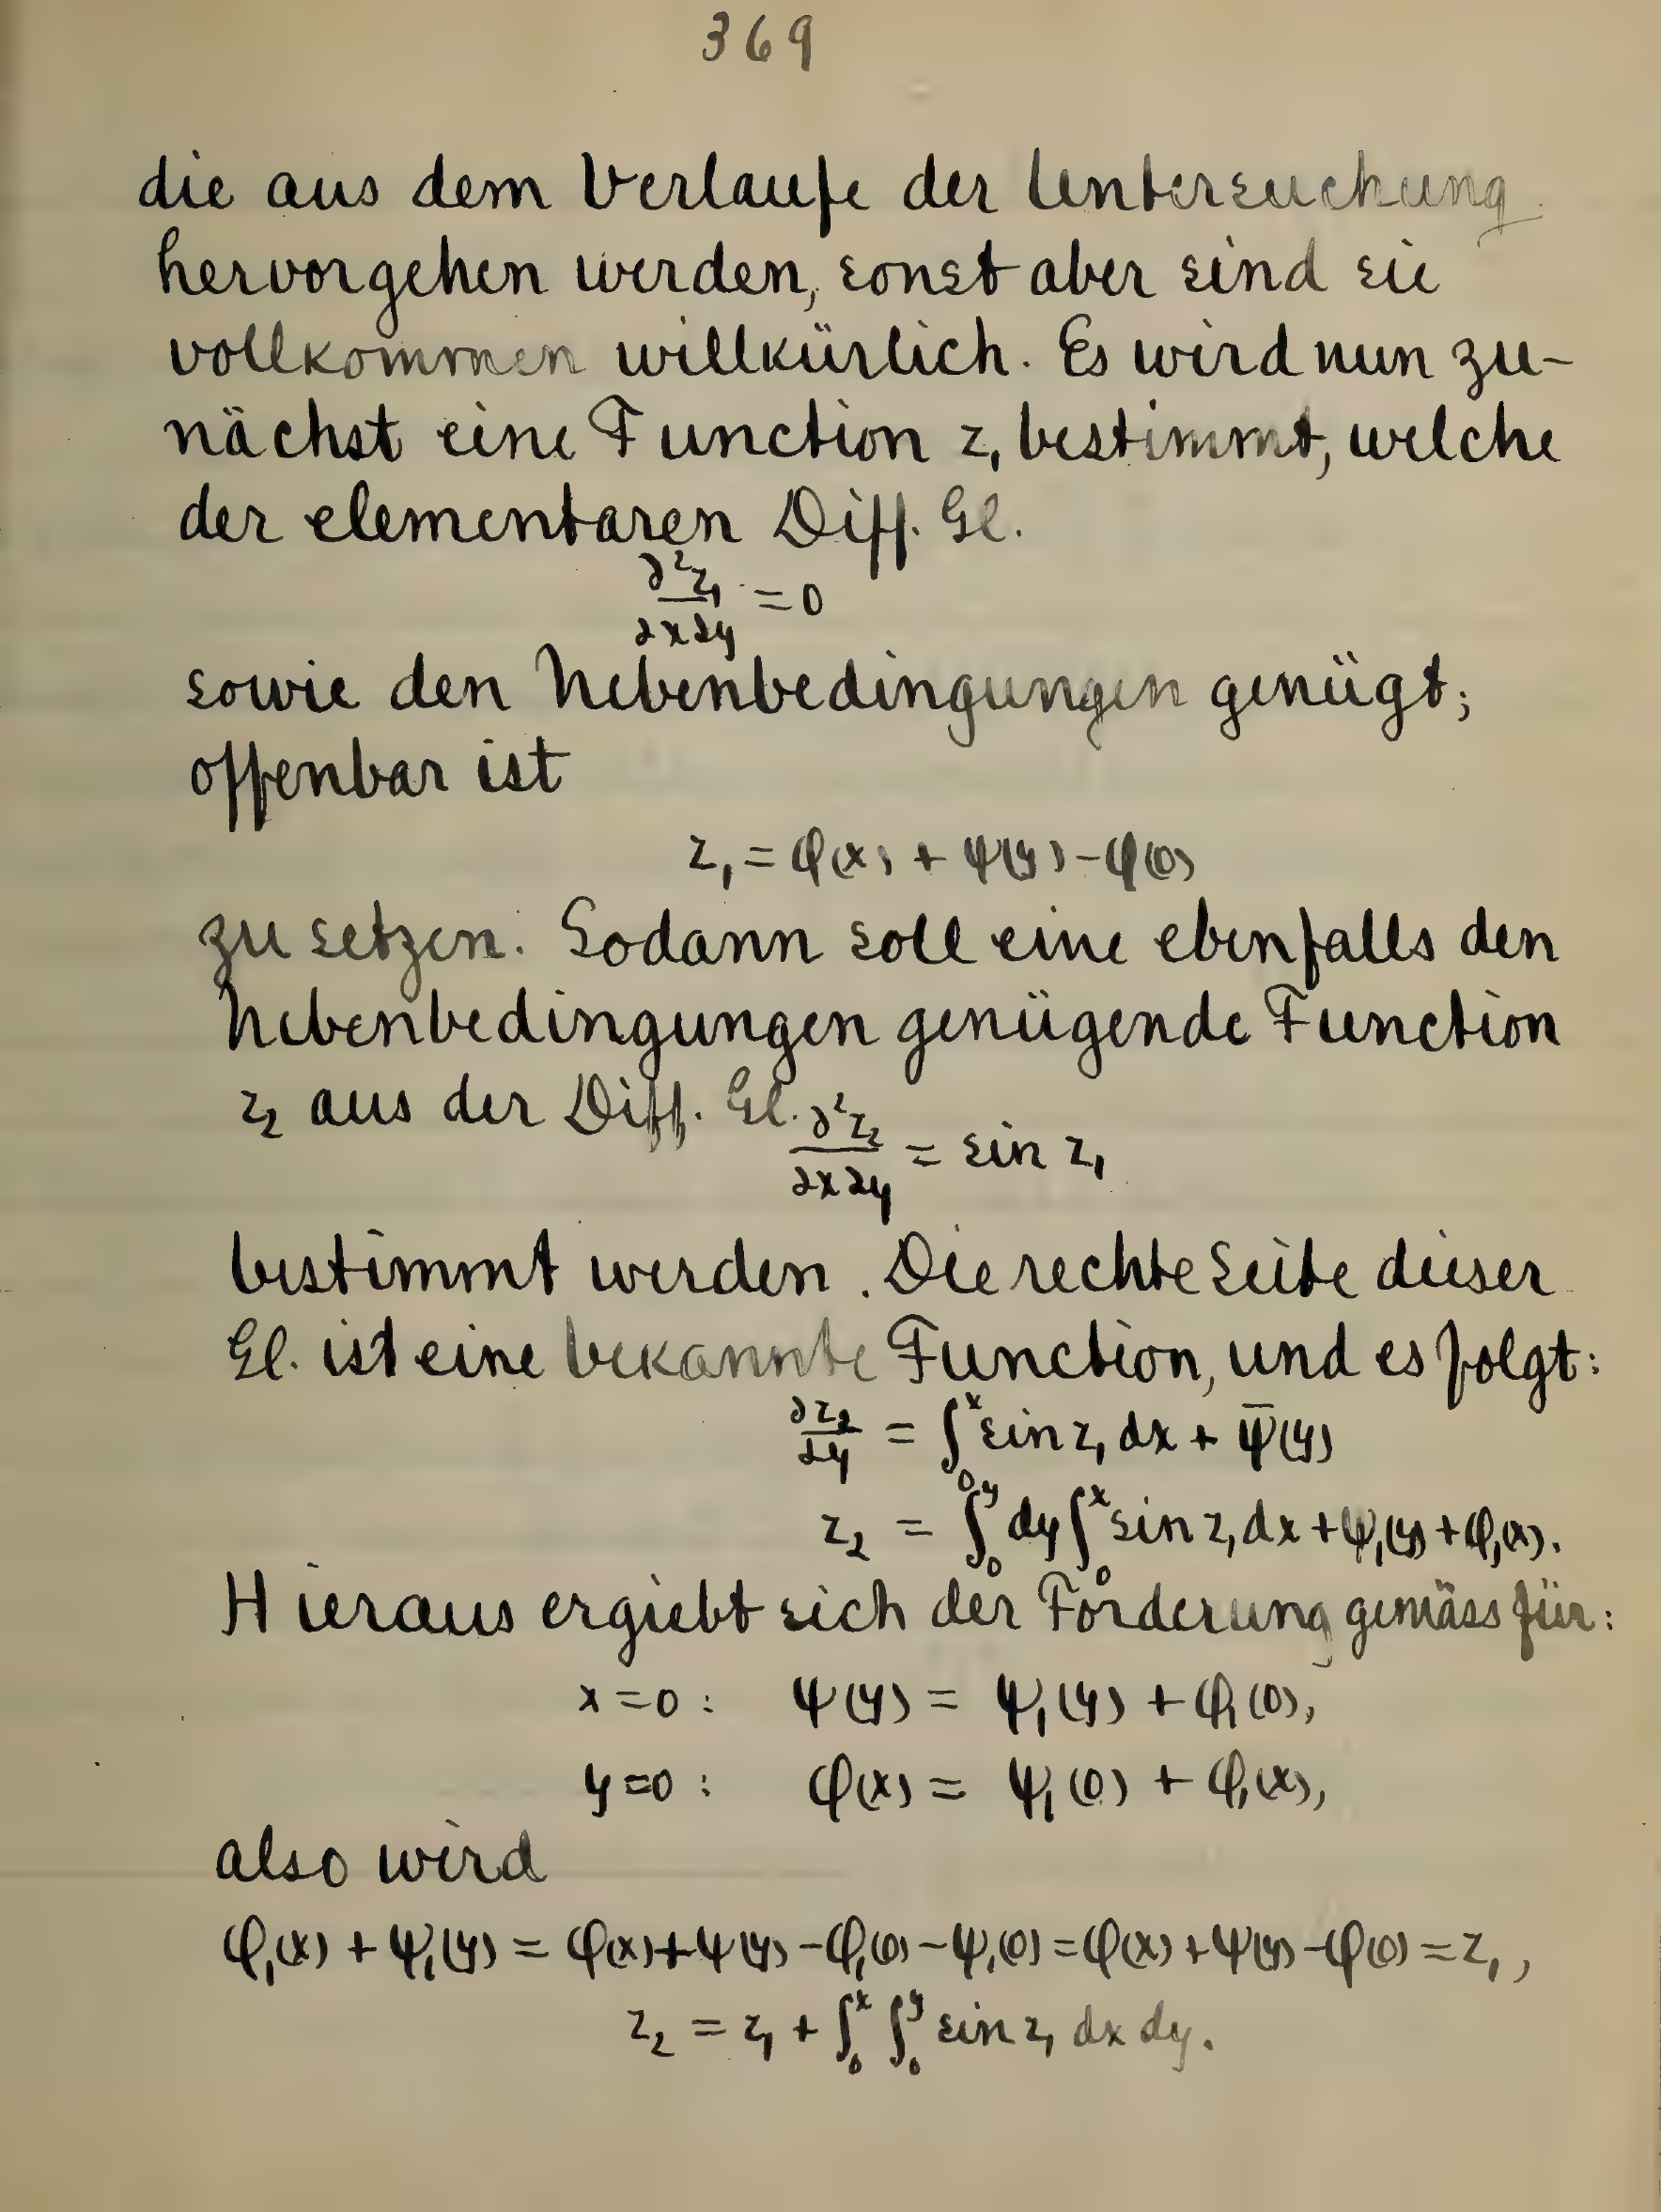 369
die aus dem Verlaufe der Untersuchung
hervorgehen werden, sonst aber sind sie
vollkommen willkürlich. Es wird nun zu-
nächst eine Function z₁ bestimmt, welche
der elementaren Diff. Gl.
∂²z₁/∂x∂y = 0
sowie den Nebenbedingungen genügt;
offenbar ist
z₁ = φ(x) + ψ(y) - φ(0)
zu setzen. Sodann soll eine ebenfalls den
Nebenbedingungen genügende Function
z₂ aus der Diff. Gl. ∂²z₂/∂x∂y = sin z₁
bestimmt werden. Die rechte Seite dieser
Gl. ist eine bekannte Function, und es folgt:
∂z₂/∂y = ∫₀ˣ sin z₁ dx + ψ̅(y)
z₂ = ∫₀ʸ dy ∫₀ˣ sin z₁ dx + ψ₁(y) + φ₁(x).
Hieraus ergiebt sich der Forderung gemäss für:
x = 0 : ψ(y) = ψ₁(y) + φ₁(0),
y = 0 : φ(x) = ψ₁(0) + φ₁(x),
also wird
φ₁(x) + ψ₁(y) = φ(x) + ψ(y) - φ₁(0) - ψ₁(0) = φ(x) + ψ(y) - φ(0) = z₁,
z₂ = z₁ + ∫₀ˣ ∫₀ʸ sin z₁ dx dy.